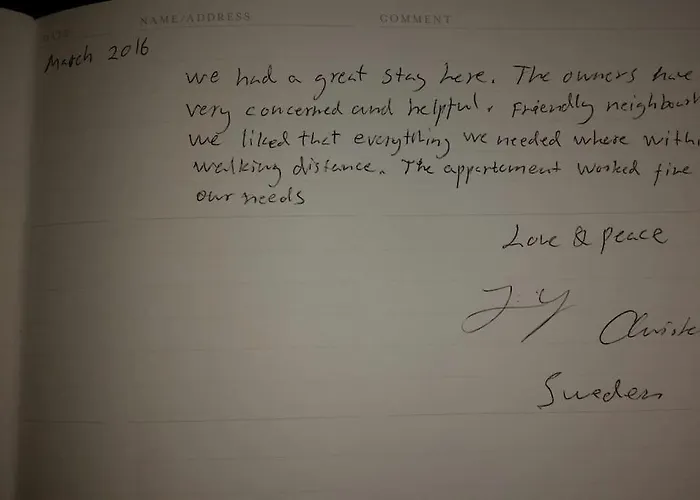 DATE NAME/ADDRESS COMMENT
March 2016
we had a great stay here. The owners have
very concerned and helpful. Friendly neighbourh
we liked that everything we needed where withi
walking distance. The appartement worked fine
our needs
Love & peace
Sweden